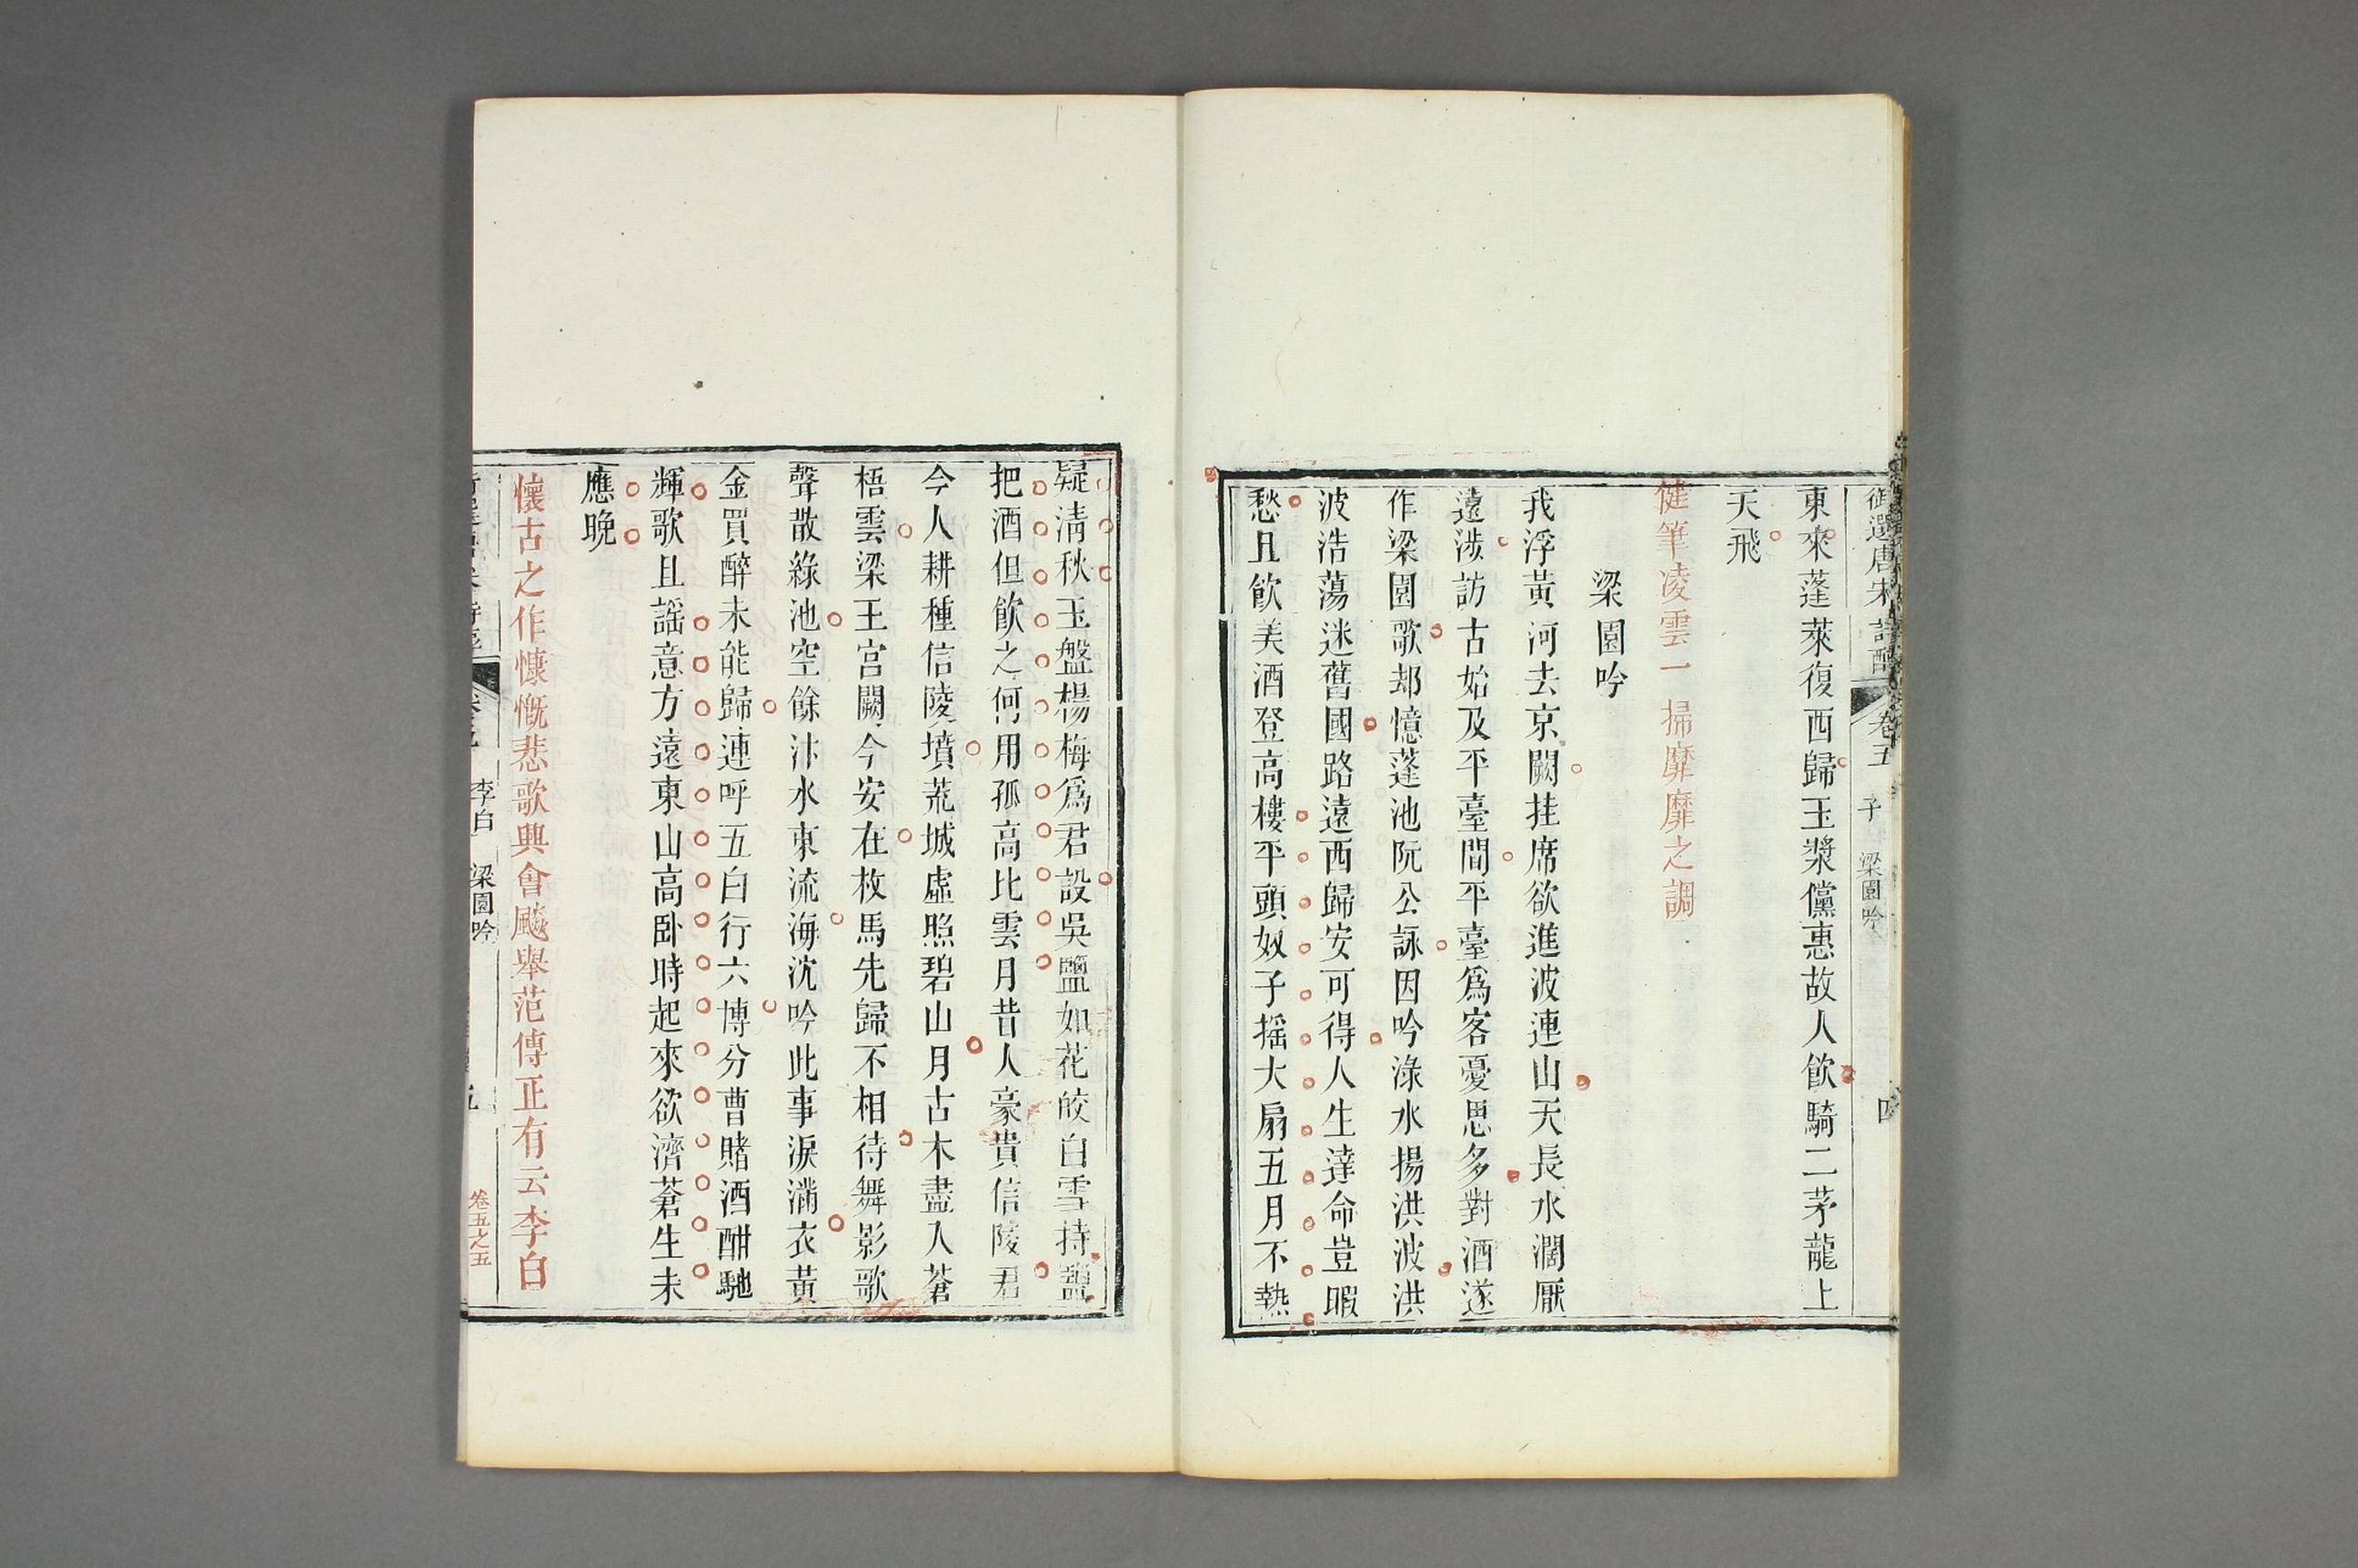 御選唐宋詩醇 卷五 子 梁園吟 四
東來蓬萊復西歸玉漿儻惠故人飲騎二茅龍上
天飛
健筆凌雲一掃靡靡之調
梁園吟
我浮黃河去京闕挂席欲進波連山天長水濶厭
遠涉訪古始及平臺間平臺爲客憂思多對酒遂
作梁園歌却憶蓬池阮公詠因吟淥水揚洪波洪
波浩蕩迷舊國路遠西歸安可得人生達命豈暇
愁且飲美酒登高樓平頭奴子摇大扇五月不熱
疑清秋玉盤楊梅爲君設吳鹽如花皎白雪持鹽
把酒但飲之何用孤高比雲月昔人豪貴信陵君
今人耕種信陵墳荒城虛照碧山月古木盡入蒼
梧雲梁王宫闕今安在枚馬先歸不相待舞影歌
聲散綠池空餘汴水東流海沈吟此事淚滿衣黃
金買醉未能歸連呼五白行六博分曹賭酒酣馳
輝歌且謡意方遠東山高卧時起來欲濟蒼生未
應晚
懷古之作慷慨悲歌興會飈舉范傳正有云李白
李白 梁園吟 五 卷五之五